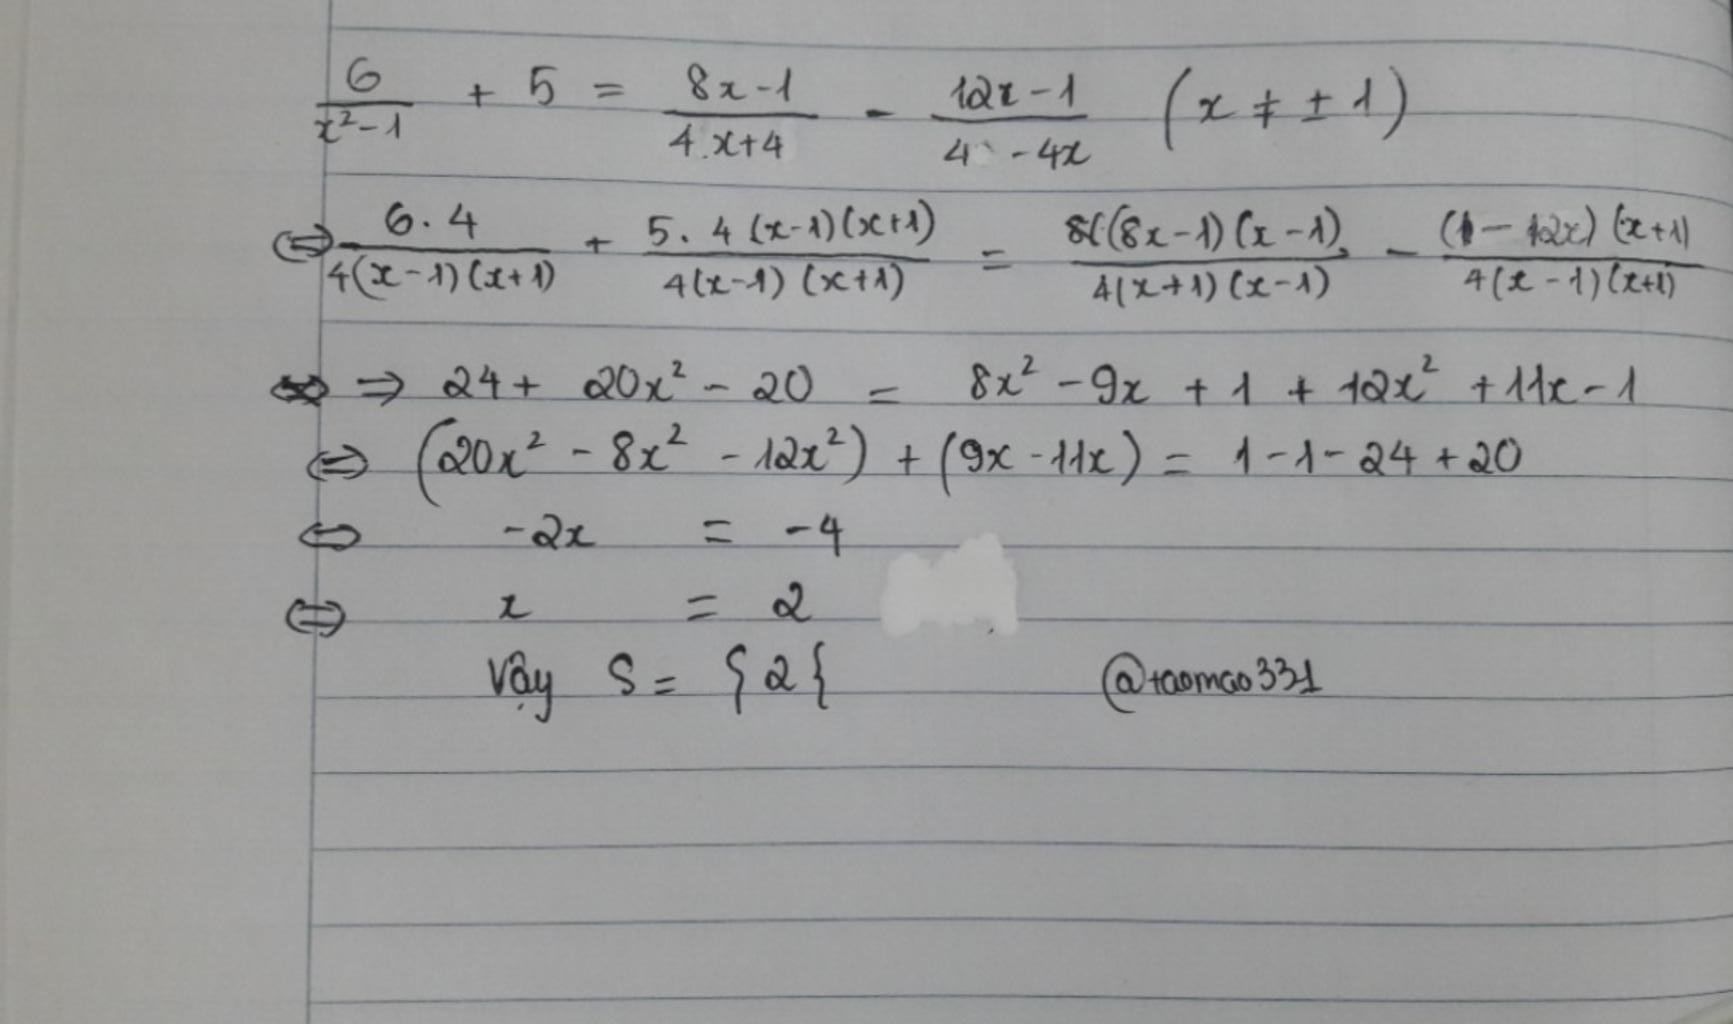 6/(x²-1) + 5 = (8x-1)/(4.x+4) - (12x-1)/(4 -4x) (x ≠ ±1)
⇔ 6.4/(4(x-1)(x+1)) + 5.4(x-1)(x+1)/(4(x-1)(x+1)) = (8x-1)(x-1)/(4(x+1)(x-1)) - (1-12x)(x+1)/(4(x-1)(x+1))
⇒ 24 + 20x² - 20 = 8x² - 9x + 1 + 12x² + 11x - 1
⇔ (20x² - 8x² - 12x²) + (9x - 11x) = 1 - 1 - 24 + 20
⇔ -2x = -4
⇔ x = 2
Vậy S = {2{
@taomao331